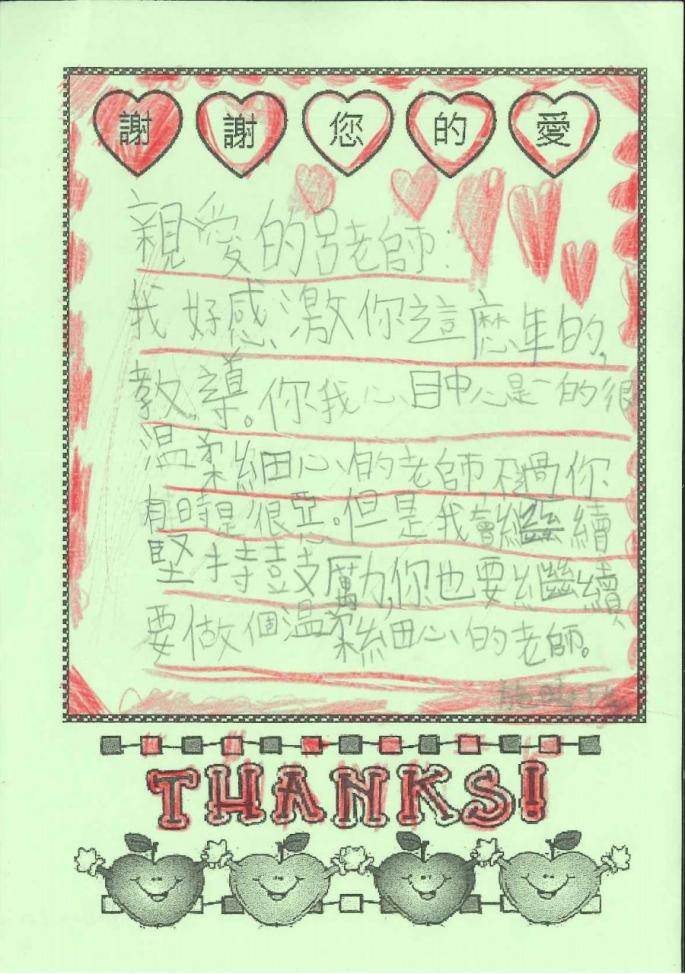 謝謝您的愛
親愛的呂老師:
我好感激你這麽年的,
教導。你我心目中心是一的很
溫柔細心的老師,不過你
有時是很惡。但是我會繼續
堅持鼓勵,你也要繼續
要做個溫柔細心的老師。
THANKS!